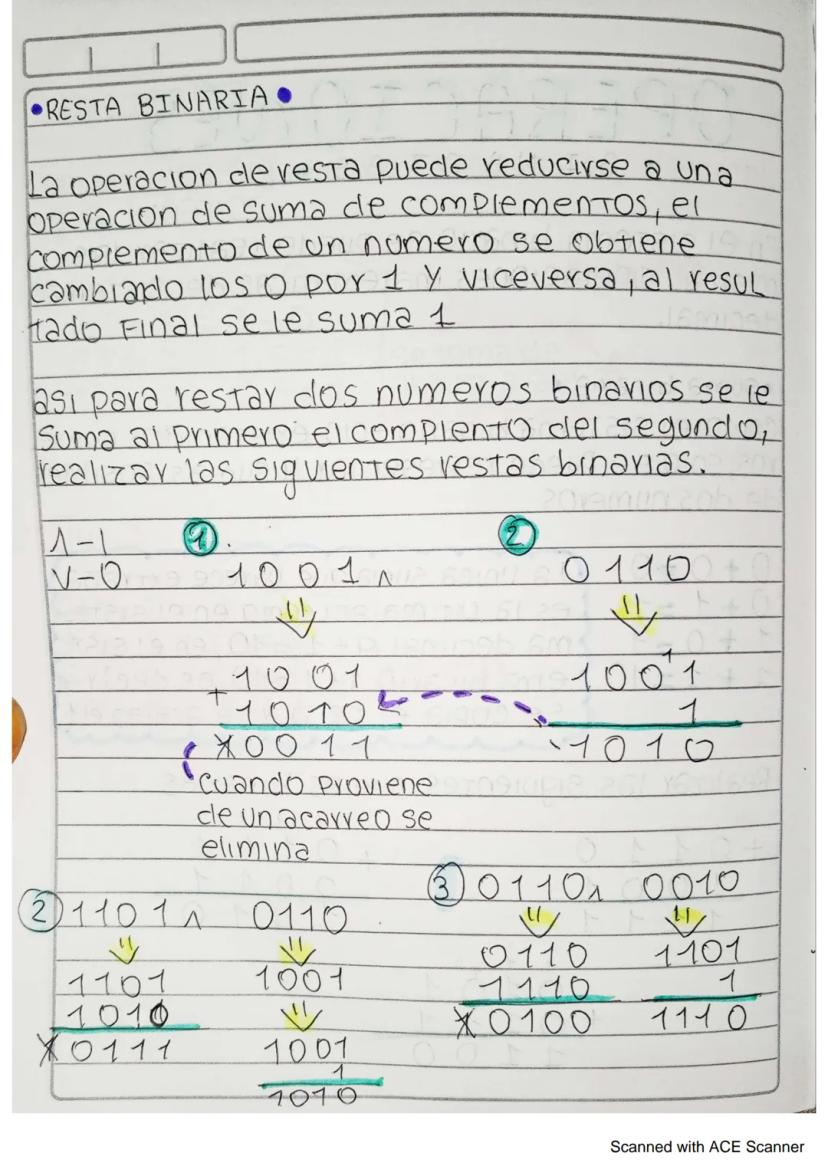 •RESTA BINARIA•
La operacion de resta puede reducirse a una
operacion de suma de complementos, el
complemento de un numero se obtiene
cambiado los 0 por 1 y viceversa, al resul
tado Final se le suma 1
asi para restar dos numeros binarios se le
suma al primero el complento del segundo,
realizar las siguientes restas binarias.
Λ-1 ①.
V-0 1001Λ
②
0110
1001
+1010
X0011
cuando proviene
de un acarreo se
elimina
1
1001
1
1010
② 1101Λ 0110
1101 1001
1010
X0111 1001
1
1010
③ 0110Λ 0010
0110 1101
1110 1
X0100 1110
Scanned with ACE Scanner